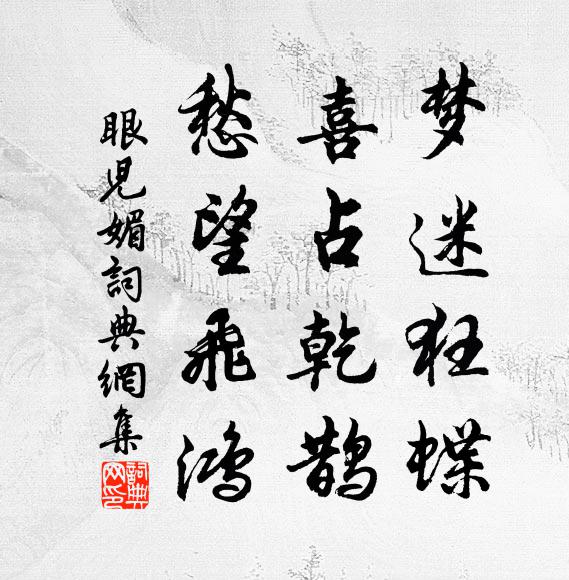 梦迷狂蝶
喜占乾鹊
愁望飛鴻
眼兒媚詞典網集
詞典网印